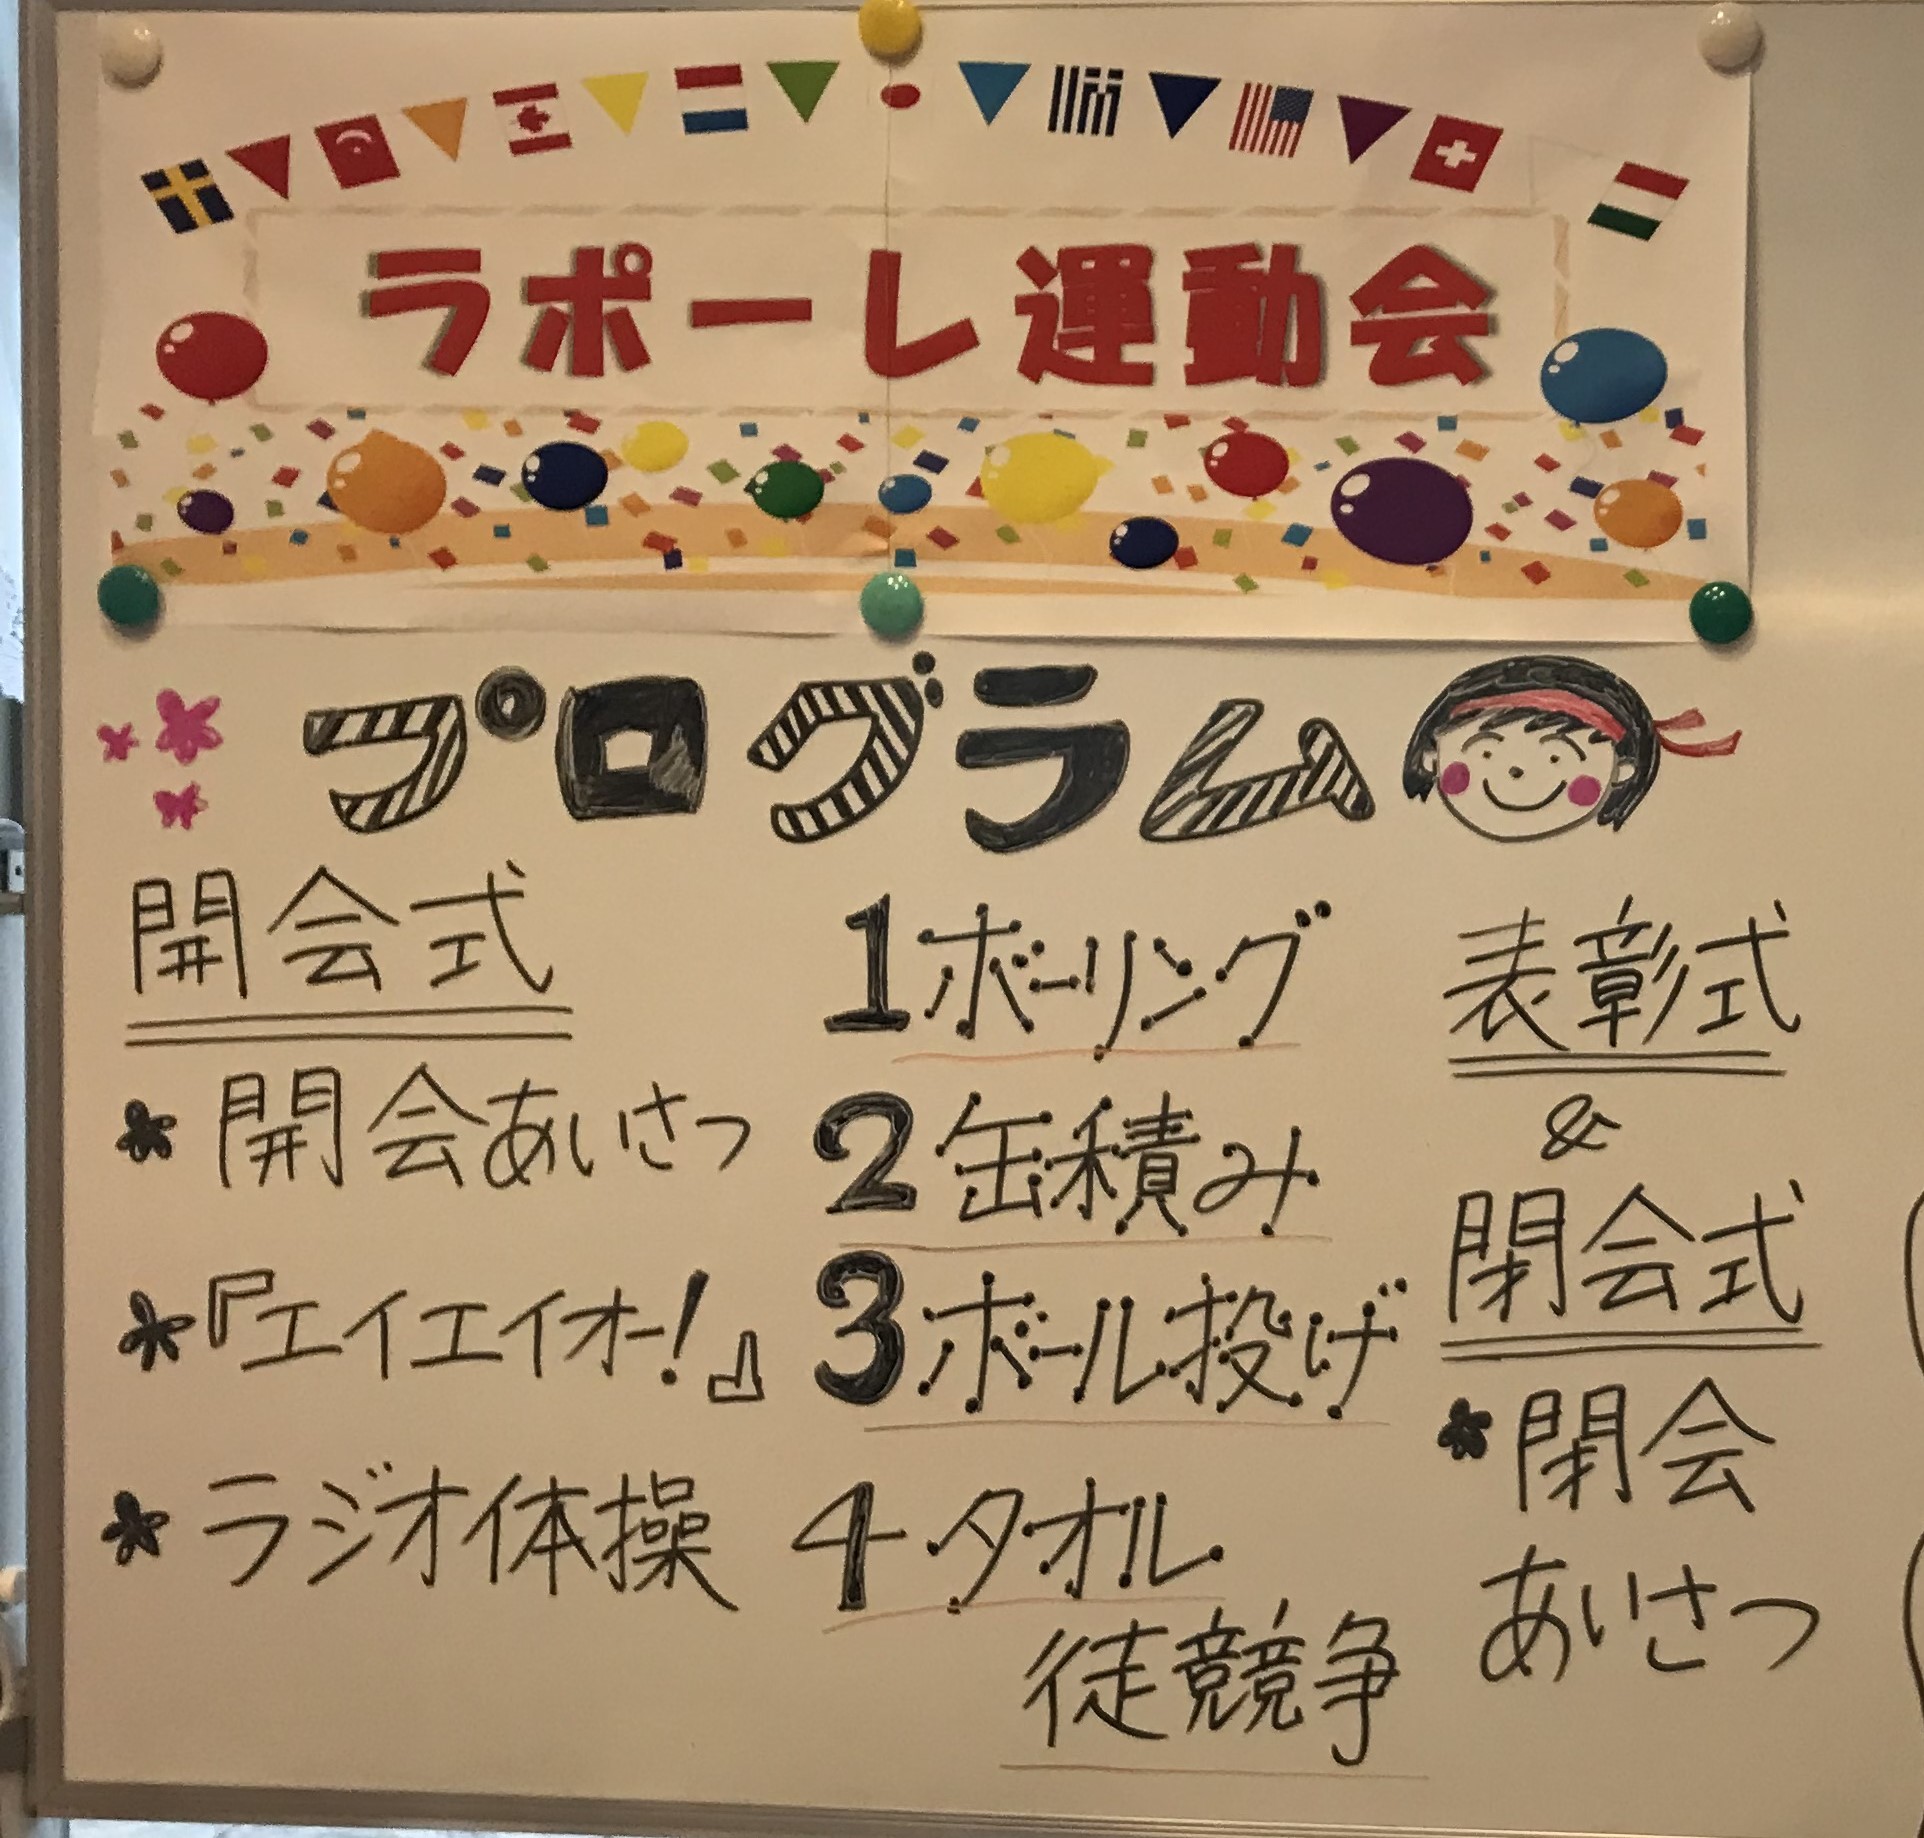 ラポーレ運動会
プログラム
開会式
* 開会あいさつ
* 『エイエイオー!』
* ラジオ体操
1 ボーリング
2 缶積み
3 ボール投げ
4 タオル
徒競争
表彰式
&
閉会式
* 閉会
あいさつ